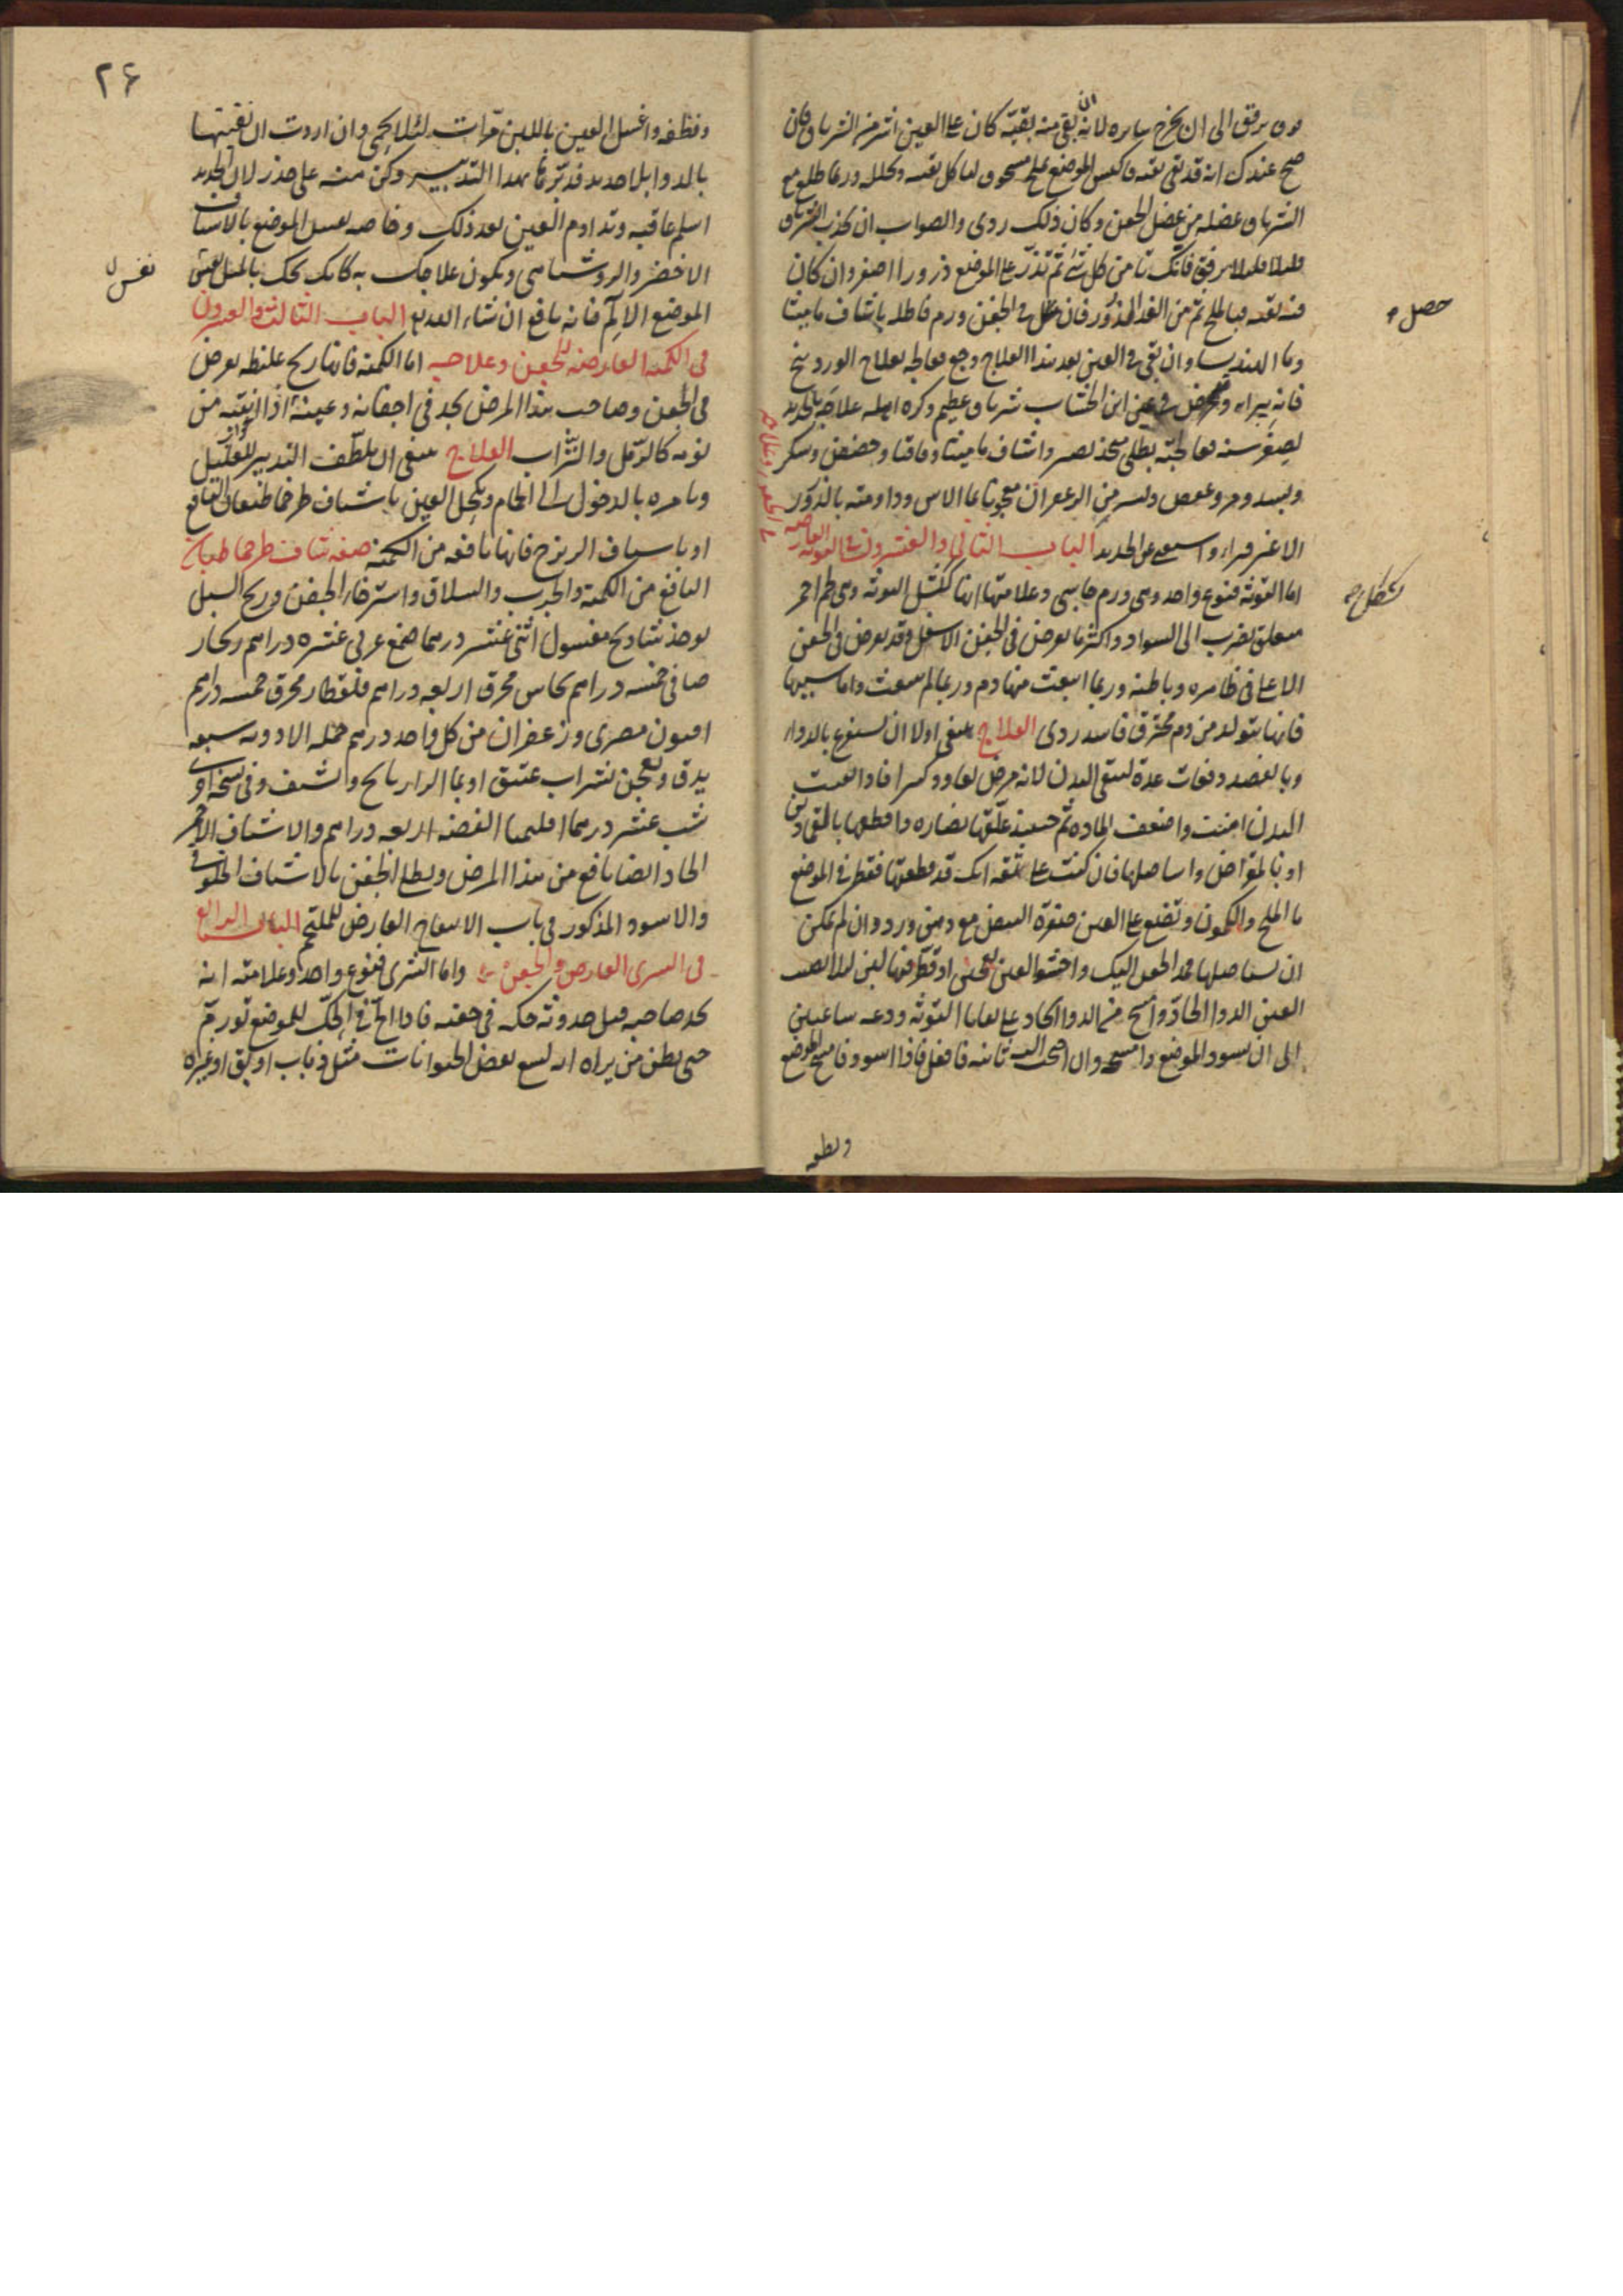 برفق الى ان يخرج سايره لانه ان بقى منه بقيّة كان على العين اشر من الشرناق فان
صح عندك انه قد بقى بقيه فاكبس الموضع بملح مسحوق لياكل بقيته ويحلله وربما طلع مع
الشرناق عضله من عضل الجفن وكان ذلك ردى والصواب ان تجذب الشرناق
قليلا قليلا برفق فانك تامن كل شئ ثم تذر على الموضع ذرورا اصفر وان كان
فيه بقيه فبالملح ثم من الغد الذرور فان حصل فى الجفن ورم فاطله باشياف ماميثا
وما الهندبا وان بقى فى العين بعد هذا العلاج وجع فعالجه بعلاج الوردينج
فانه يبراء وعرض فى عين ابن الخشاب شرناق عظيم وكره اهله علاجه بالحديد
لصغر سنه فعالجته بطلى متخذ بصبر واشياف ماميثا وقاقيا وحضض وسكر
ومر وعفص ويسير من الزعفران معجونا بما الاس وداومته بالذرور
الاغبر فبراء واستغنى عن الحديد الباب الثانى والعشرون فى التوثه العارضه
فى الجفن وعلاجه
اما التوثة فنوع واحد وهى ورم جاسى وعلامتها انها كمثل التوثة وهى لحم احمر
معلق يضرب الى السواد واكثر ما يعرض فى الجفن الاسفل وقد يعرض فى الجفن
الاعلى فى ظاهره وباطنه وربما انبعث منها دم وربما لم ينبعث واما سببها
فانها تتولد من دم محترق فاسد ردى العلاج ينبغى اولا ان تستفرغ بالدواء
وبالفصد دفعات عدة لتنقى البدن لانه مرض يعاود كثيرا فاذا نقيت
البدن امنت واضعف المادة ثم حينئذ علّقها بصناره واقطعها بالقمادين
او بالمقراض واستاصلها فان كنت على ثقه انك قد قطعتها فقطر فى الموضع
ما الملح والكمون وتضع على العين صفرة البيض مع دهن ورد وان لم يمكن
ان تستاصلها فمد الجفن اليك واحشو العين بعجين او قطر فيها لبن لئلا يصيب
العين الدوا الحاد وامسح من الدوا الحاد على بقايا التوثه ودعه ساعتين
الى ان يسود الموضع وامسحه وان احتجت اليه ثانيه فافعل فاذا اسود فامسح الموضع
ونظفه
حصل
٢۶
ونظفه واغسل العين باللبن مرّات لئلا يحمى وان اردت ان تفنيها
بالدوا بلا حديد فدبّرها بهذا التدبير وكن منه على حذر لان الحديد
اسلم عاقبه وتداوم العين بعد ذلك وخاصه بغسل الموضع بالاشياف
الاخضر والروشناى ويكون علاجك به كانك تحك بالميل نفس
الموضع الالم فانه نافع ان شاء الله تع الباب الثالث والعشرون
فى الكمنه العارضه للجفن وعلاجه اما الكمنه فانها ريح غليظه تعرض
فى الجفن وصاحب هذا المرض يجد فى اجفانه وعينه اذا انتبه من
نومه كالرمل والتراب العلاج ينبغى ان يلطف التدبير للعليل
ويامره بالدخول الى الحمام ويكحل العين باشياف طرخماطيقان النافع
او باشياف الزيزج فانها نافعه من الكمنة صفة شياف طرخماطيقان
النافع من الكمنه والجرب والسلاق واسترخاء الجفن وريح السبل
يوخذ شاذنج مغسول اثنى عشر درهما صمغ عربى عشره دراهم زنجار
صافى خمسه دراهم نحاس محرق اربعه دراهم قلقطار محرق خمسه دراهم
افيون مصرى وزعفران من كل واحد درهم جمله الادويه سبعه
يدق ويعجن بشراب عتيق او بما الرازيانج ويشيف وفى نسخه اخرى
شب عشر درهما اقليميا الفضه اربعه دراهم والاشياف الاحمر
الحاد ايضا نافع من هذا المرض ويطلى الجفن بالاشياف الخلوقى
والاسود المذكور فى باب الانتفاخ العارض للملتحم الباب الرابع
فى الشرى العارض فى الجفن واما الشرى فنوع واحد وعلامته انه
يجد صاحبه قبل حدوثه حكه فى جفنه فاذا الحّ فى الحك للموضع تورم
حتى يظن من يراه انه لسع بعض الحيوانات مثل ذباب او بق او غيره
نفس